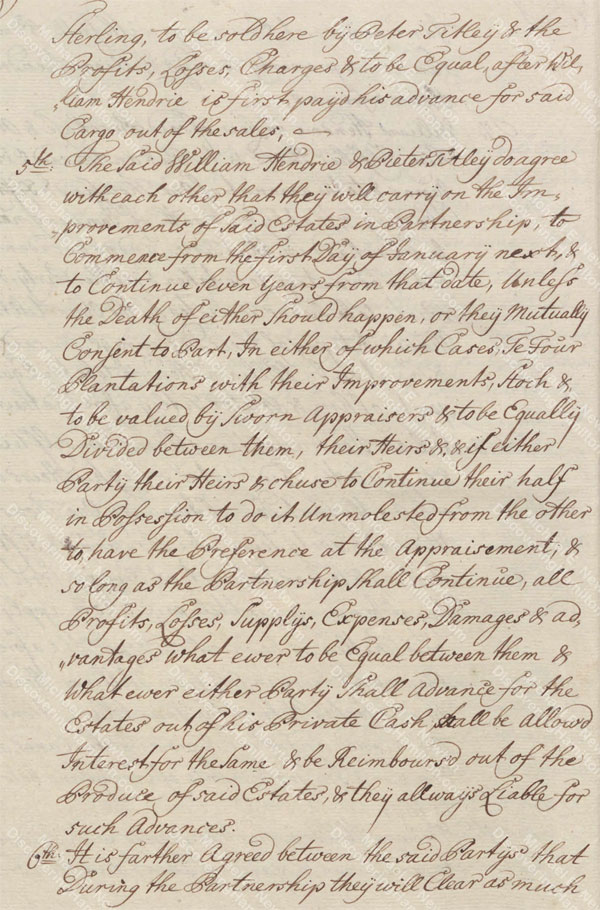 Sterling, to be sold here by Peter Titley & the
Profits, Losses, Charges & to be Equal, after Wil,
"liam Hendrie is first payd his advance for said
Cargo out of the sales,
5th: The Said William Hendrie & Pieter Titley do agree
with each other that they will carry on the Im,
"provements of Said Estates in Partnership, to
Commence from the first Day of January next, &
to Continue Seven Years from that date, Unless
the Death of either Should happen, or they Mutually
Consent to Part, In either of which Cases, Te Four
Plantations with their Improvements, Stock &
to be valued by Sworn Appraisers & to be Equally
Divided between them, their Heirs &. & if either
Party their Heirs & chuse to Continue their half
in Possession to do it Unmolested from the other
to have the Preference at the Appraisement; &
so long as the Partnership Shall Continue, all
Profits, Losses, Supplys, Expenses, Damages & ad,
"vantages what ewer to be Equal between them &
What ewer either Party Shall Advance for the
Estates out of his Private Cash, shall be Allowd
Interest for the Same & be Reimboursd out of the
Produce of said Estates, & they allways Liable for
such Advances.
6th: It is farther Agreed between the said Partys that
During the Partnership they will Clear as much